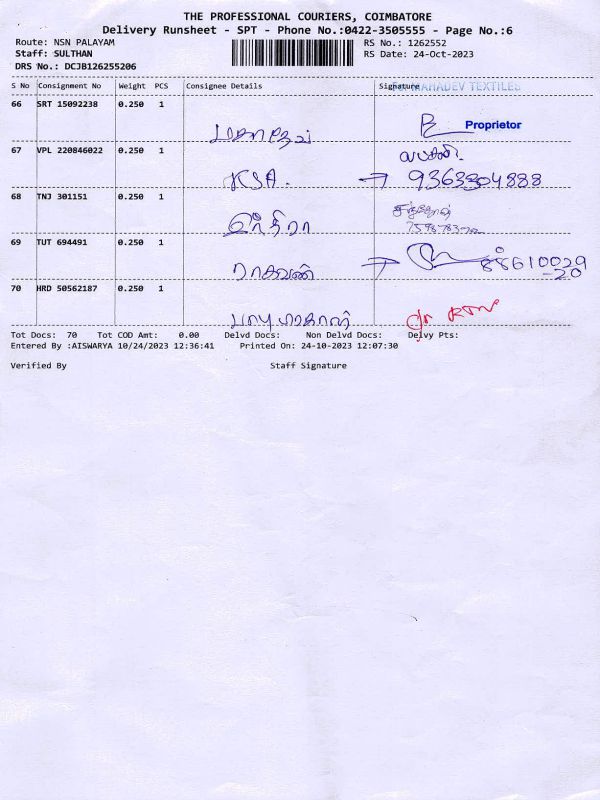 THE PROFESSIONAL COURIERS, COIMBATORE
Delivery Runsheet - SPT - Phone No.:0422-3505555 - Page No.:6
Route: NSN PALAYAM RS No.: 1262552
Staff: SULTHAN RS Date: 24-Oct-2023
DRS No.: DCJB126255206
S No Consignment No Weight PCS Consignee Details Signature MAHADEV TEXTILES
66 SRT 15092238 0.250 1 மகாதேவ் Proprietor
67 VPL 220846022 0.250 1 KSA. → 9363304888
68 TNJ 301151 0.250 1 இந்திரா
69 TUT 694491 0.250 1 ராகவன் → 8861002920
70 HRD 50562187 0.250 1
Tot Docs: 70 Tot COD Amt: 0.00 Delvd Docs: Non Delvd Docs: Delvy Pts:
Entered By :AISWARYA 10/24/2023 12:36:41 Printed On: 24-10-2023 12:07:30
Verified By Staff Signature